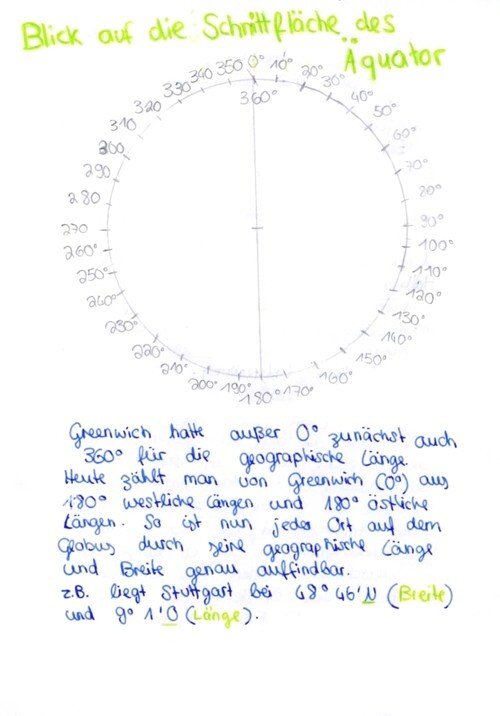 Blick auf die Schnittfläche des
Äquator
0°
10°
20°
30°
40°
50°
60°
70°
80°
90°
100°
110°
120°
130°
140°
150°
160°
170°
180°
190°
200°
210°
220°
230°
240°
250°
260°
270
280
290
300
310
320
330
340
350
360°
Greenwich hatte außer 0° zunächst auch
360° für die geographische Länge.
Heute zählt man von Greenwich (0°) aus
180° westliche Längen und 180° östliche
Längen. So ist nun jeder Ort auf dem
Globus durch seine geographische Länge
und Breite genau auffindbar.
z.B. liegt Stuttgart bei 48° 46' N (Breite)
und 9° 1' O (Länge).